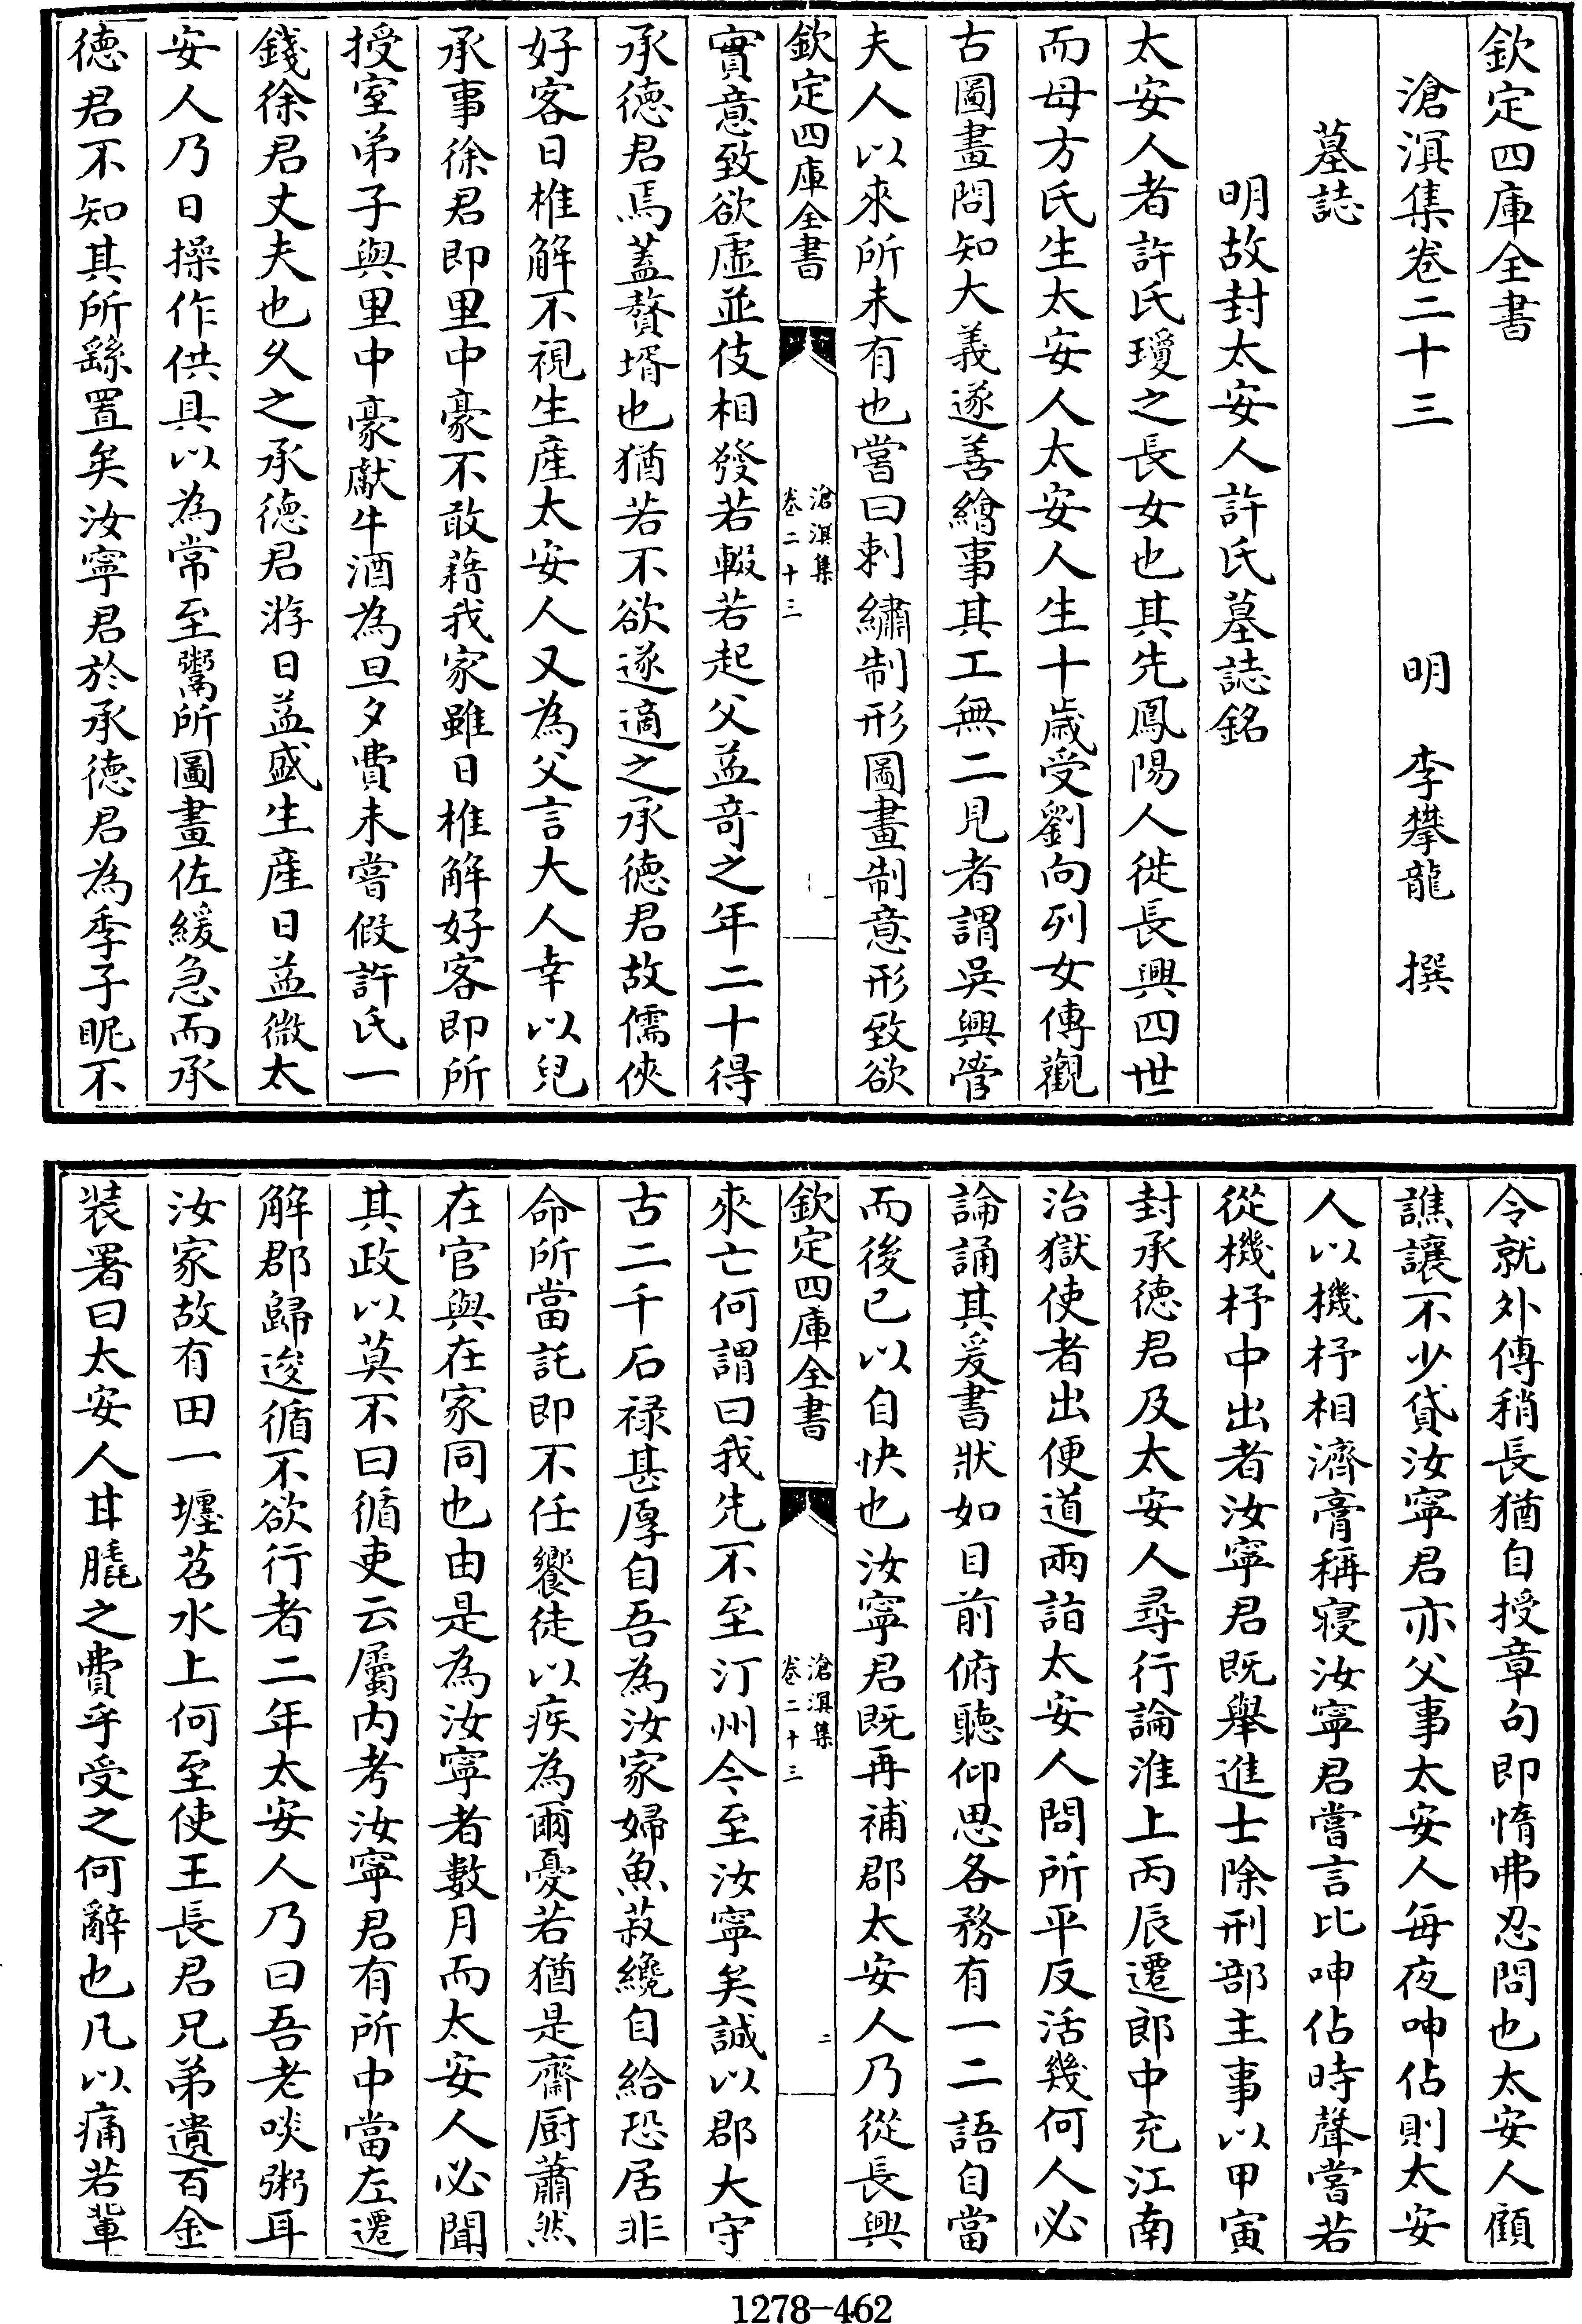 欽定四庫全書
滄溟集卷二十三　明　李攀龍　撰
墓誌
明故封太安人許氏墓誌銘
太安人者許氏瓊之長女也其先鳳陽人徙長興四世
而母方氏生太安人太安人生十歲受劉向列女傳觀
古圖畫問知大義遂善繪事其工無二見者謂吳興管
夫人以來所未有也嘗曰刺繡制形圖畫制意形致欲
欽定四庫全書
滄溟集
卷二十三
一
實意致欲虛並伎相發若輟若起父益奇之年二十得
承德君焉蓋贅壻也猶若不欲遂適之承德君故儒俠
好客日椎解不視生產太安人又為父言大人幸以兒
承事徐君即里中豪不敢藉我家雖日椎解好客即所
授室弟子與里中豪獻牛酒為旦夕費未嘗假許氏一
錢徐君丈夫也久之承德君游日益盛生產日益微太
安人乃日操作供具以為常至鬻所圖畫佐緩急而承
德君不知其所繇置矣汝寧君於承德君為季子昵不
令就外傅稍長猶自授章句即惰弗忍問也太安人顧
譙讓不少貸汝寧君亦父事太安人每夜呻佔則太安
人以機杼相濟膏稱寢汝寧君嘗言比呻佔時聲嘗若
從機杼中出者汝寧君既舉進士除刑部主事以甲寅
封承德君及太安人尋行論淮上丙辰遷郎中充江南
治獄使者出便道兩詣太安人問所平反活幾何人必
論誦其爰書狀如目前俯聽仰思各務有一二語自當
而後已以自快也汝寧君既再補郡太安人乃從長興
欽定四庫全書
滄溟集
卷二十三
二
來亡何謂曰我先不至汀州今至汝寧矣誠以郡大守
古二千石祿甚厚自吾為汝家婦魚菽纔自給恐居非
命所當託即不任饗徒以疾為爾憂若猶是齋厨蕭然
在官與在家同也由是為汝寧者數月而太安人必聞
其政以莫不曰循吏云屬內考汝寧君有所中當左遷
解郡歸逡循不欲行者二年太安人乃曰吾老啖粥耳
汝家故有田一壥苕水上何至使王長君兄弟遺百金
裝署曰太安人甘脆之費乎受之何辭也凡以痛若輩
1278-462